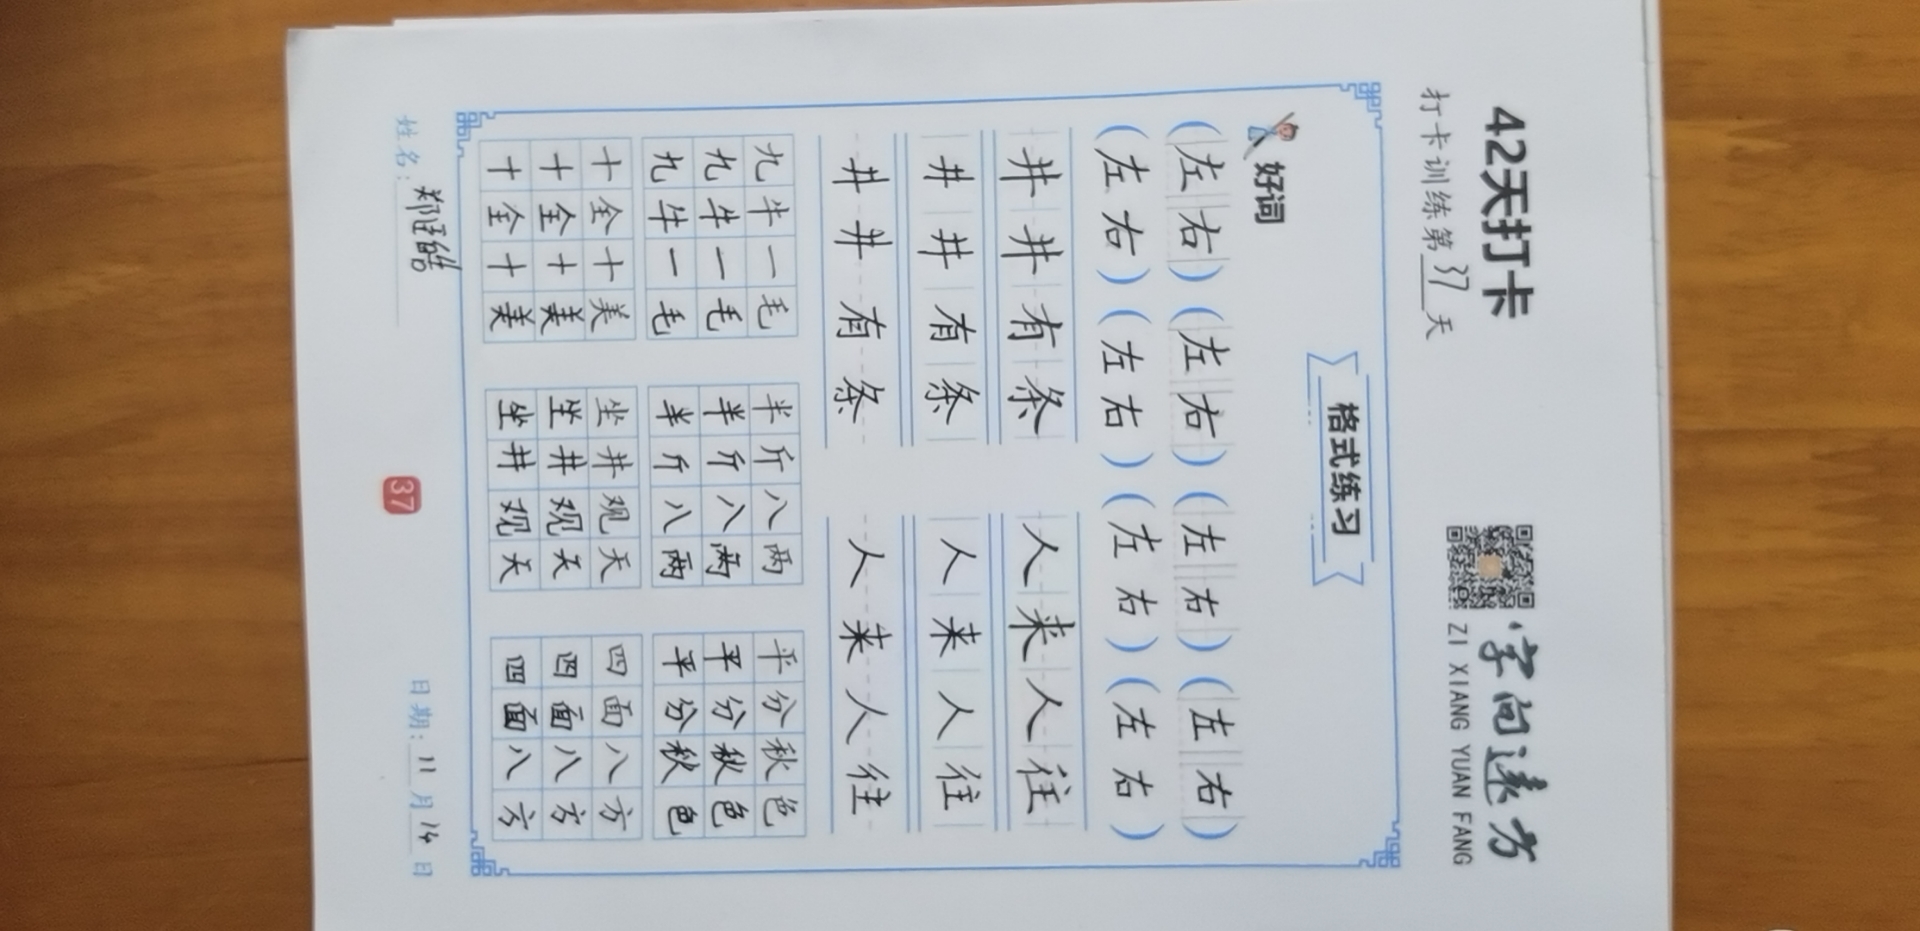 42天打卡
打卡训练第37天
字向远方
ZI XIANG YUAN FANG
格式练习
好词
(左右)(左右)(左右)(左右)
(左右)(左右)(左右)(左右)
井井有条 人来人往
井井有条 人来人往
井井有条 人来人往
九牛一毛 半斤八两 平分秋色
九牛一毛 半斤八两 平分秋色
九牛一毛 半斤八两 平分秋色
十全十美 坐井观天 四面八方
十全十美 坐井观天 四面八方
十全十美 坐井观天 四面八方
姓名: 日期:11月14日
37